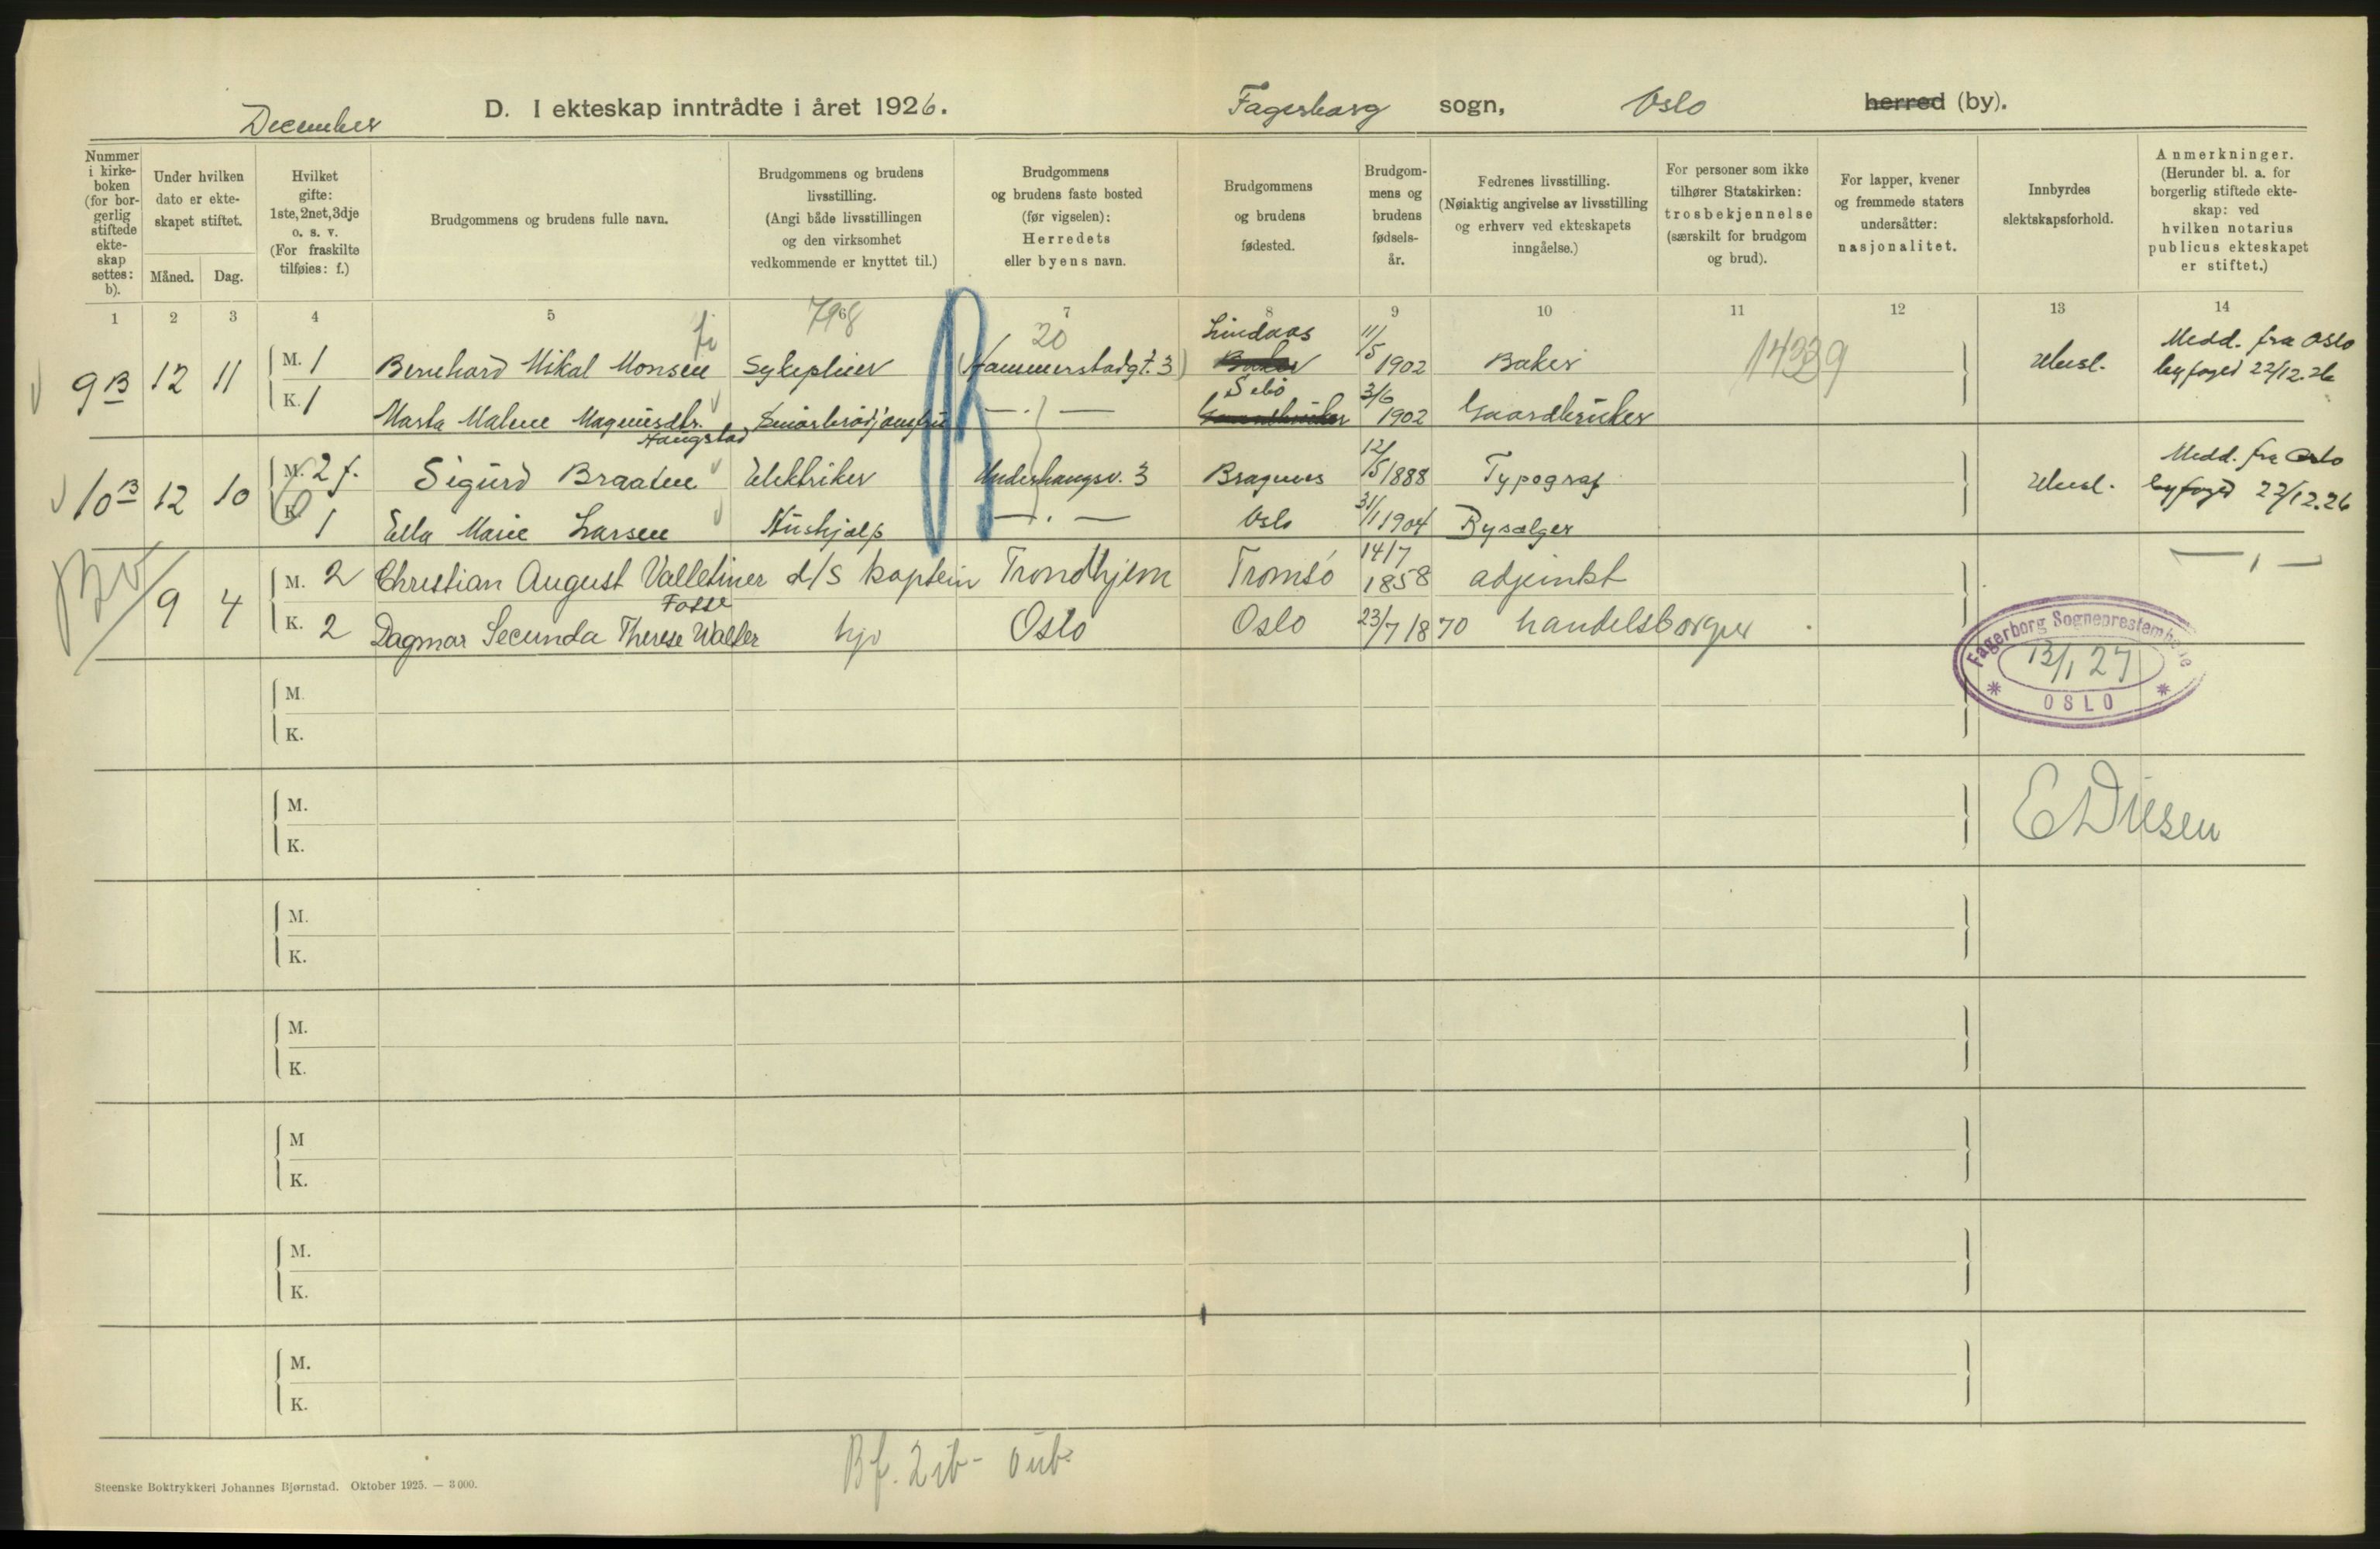 December D. I ekteskap inntrådte i året 1926. Fagerborg sogn, Oslo herred (by).
Nummer i kirke- boken (for bor- gerlig stiftede ekte- skap settes: b).
Under hvilken dato er ekte- skapet stiftet.
Måned. Dag.
Hvilket gifte: 1ste, 2net, 3dje o. s. v. (For fraskilte tilføies: f.)
Brudgommens og brudens fulle navn.
Brudgommens og brudens livsstilling. (Angi både livsstillingen og den virksomhet vedkommende er knyttet til.)
Brudgommens og brudens faste bosted (før vigselen): Herredets eller byens navn.
Brudgommens og brudens fødested.
Brudgom- mens og brudens fødsels- år.
Fedrenes livsstilling. (Nøiaktig angivelse av livsstilling og erhverv ved ekteskapets inngåelse.)
For personer som ikke tilhører Statskirken: trosbekjennelse (særskilt for brudgom og brud).
For lapper, kvener og fremmede staters undersåtter: nasjonalitet.
Innbyrdes slektskapsforhold.
Anmerkninger. (Herunder bl. a. for borgerlig stiftede ekte- skap: ved hvilken notarius publicus ekteskapet er stiftet.)
1 2 3 4 5 6 7 8 9 10 11 12 13 14
798 20 14339
9 B 12 11 M. 1 Bernhard Mikal Monsen Sykepleier Hammerstadgt. 3 Lindaas 11/5 1902 Baker Ubesl. Medd. fra Oslo byfoged 22/12.26
K. 1 Marta Malene Magnusdtr. Haugstad Smørbrødjomfru — . — Sebø 3/6 1902 Gaardbruker
10 B 12 10 M. 2 f. Sigurd Braaten Elektriker Underhaugsv. 3 Bragernes 12/5 1888 Typograf Ubesl. Medd. fra Oslo byfoged 22/12.26
K. 1 Ella Marie Larsen Hushjelp — . — Oslo 31/1 1904 Bysælger
9 4 M. 2 Christian August Valletiner d/s kaptein Trondhjem Tromsø 14/7 1858 adjunkt — , —
K. 2 Dagmar Secunda Therese Walter Fosse hjv Oslo Oslo 23/7 1870 handelsborger
Fagerborg Sogneprestembede
13/1 27
OSLO
M.
K.
M.
K.
E Diesen
M.
K.
M.
K.
M
K.
M.
K.
M.
K.
Bf. 2 ib - 0 ub.
Steenske Boktrykkeri Johannes Bjørnstad. Oktober 1925. — 3 000.